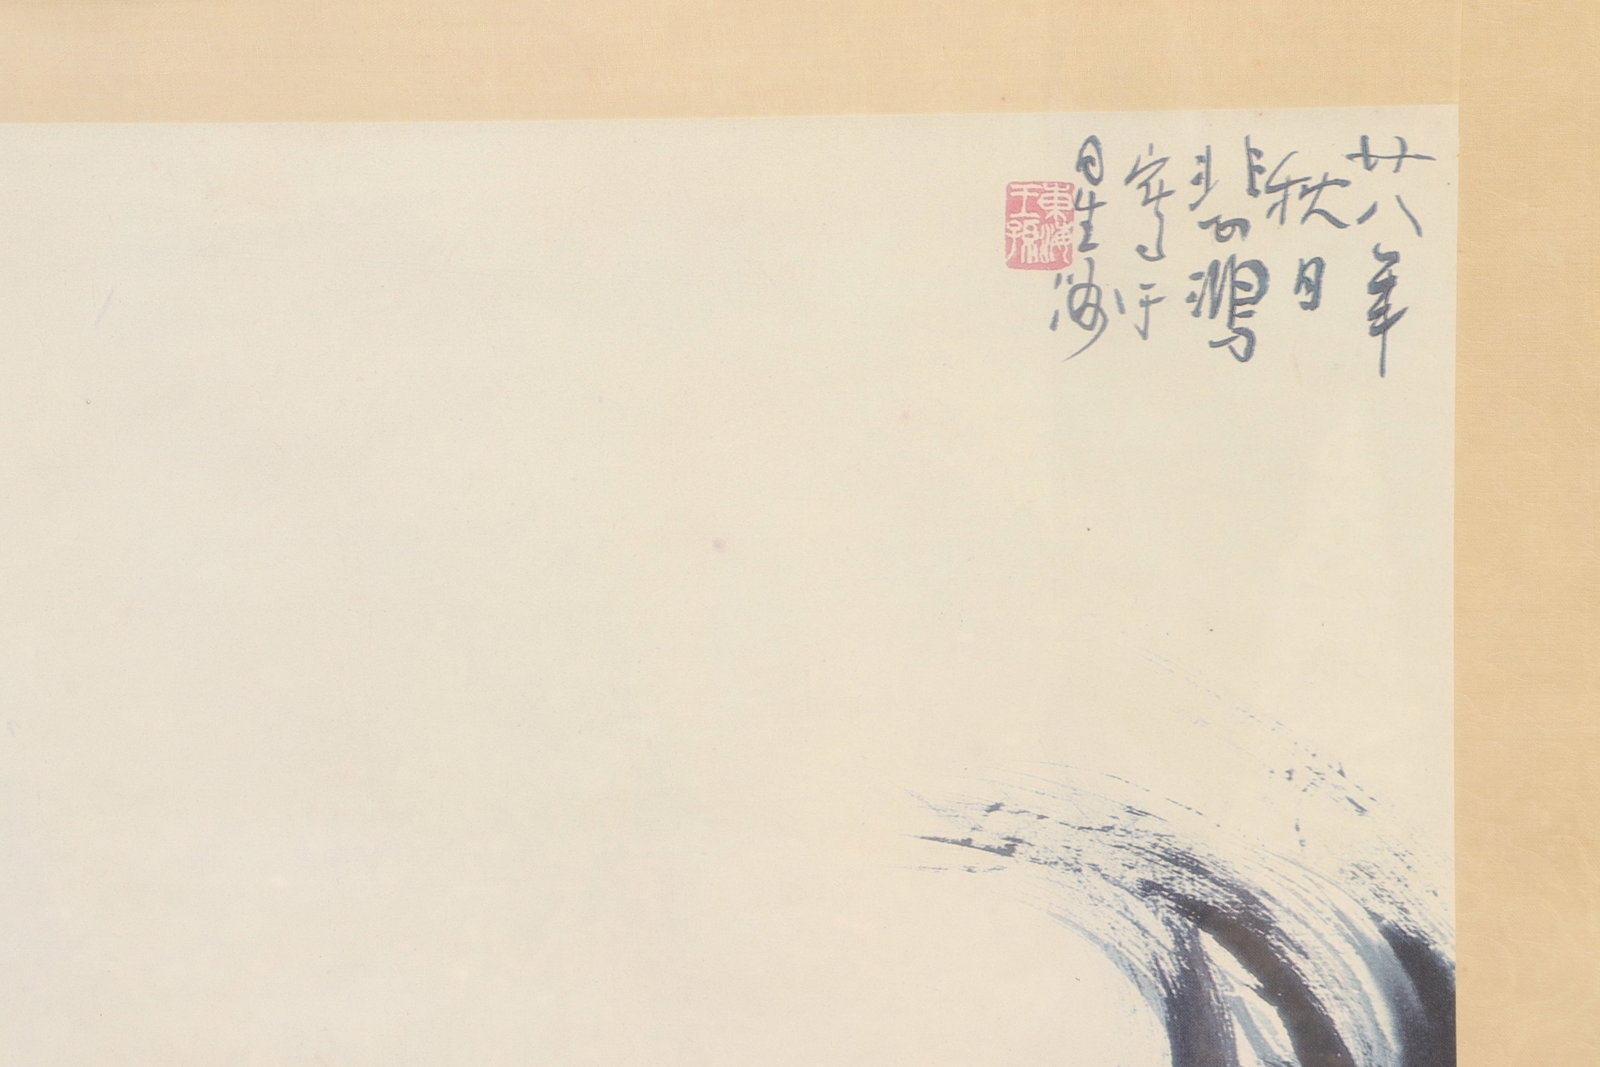 廿八年
秋日
悲鴻
寫于
星洲
東海
王孫